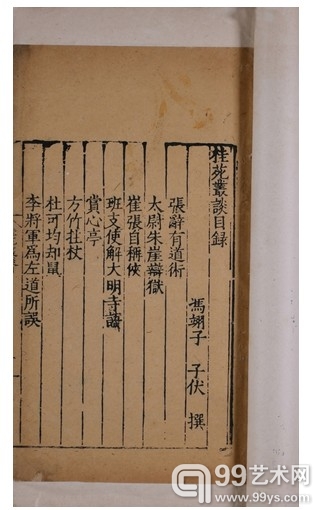 桂苑叢談目録
馮翊子 子休 撰
張辭有道術
太尉朱崖辯獄
崔張自稱俠
班支使解大明寺語
賞心亭
方竹柱杖
杜可均却鼠
李將軍爲左道所誤
99艺术网
www.99ys.com